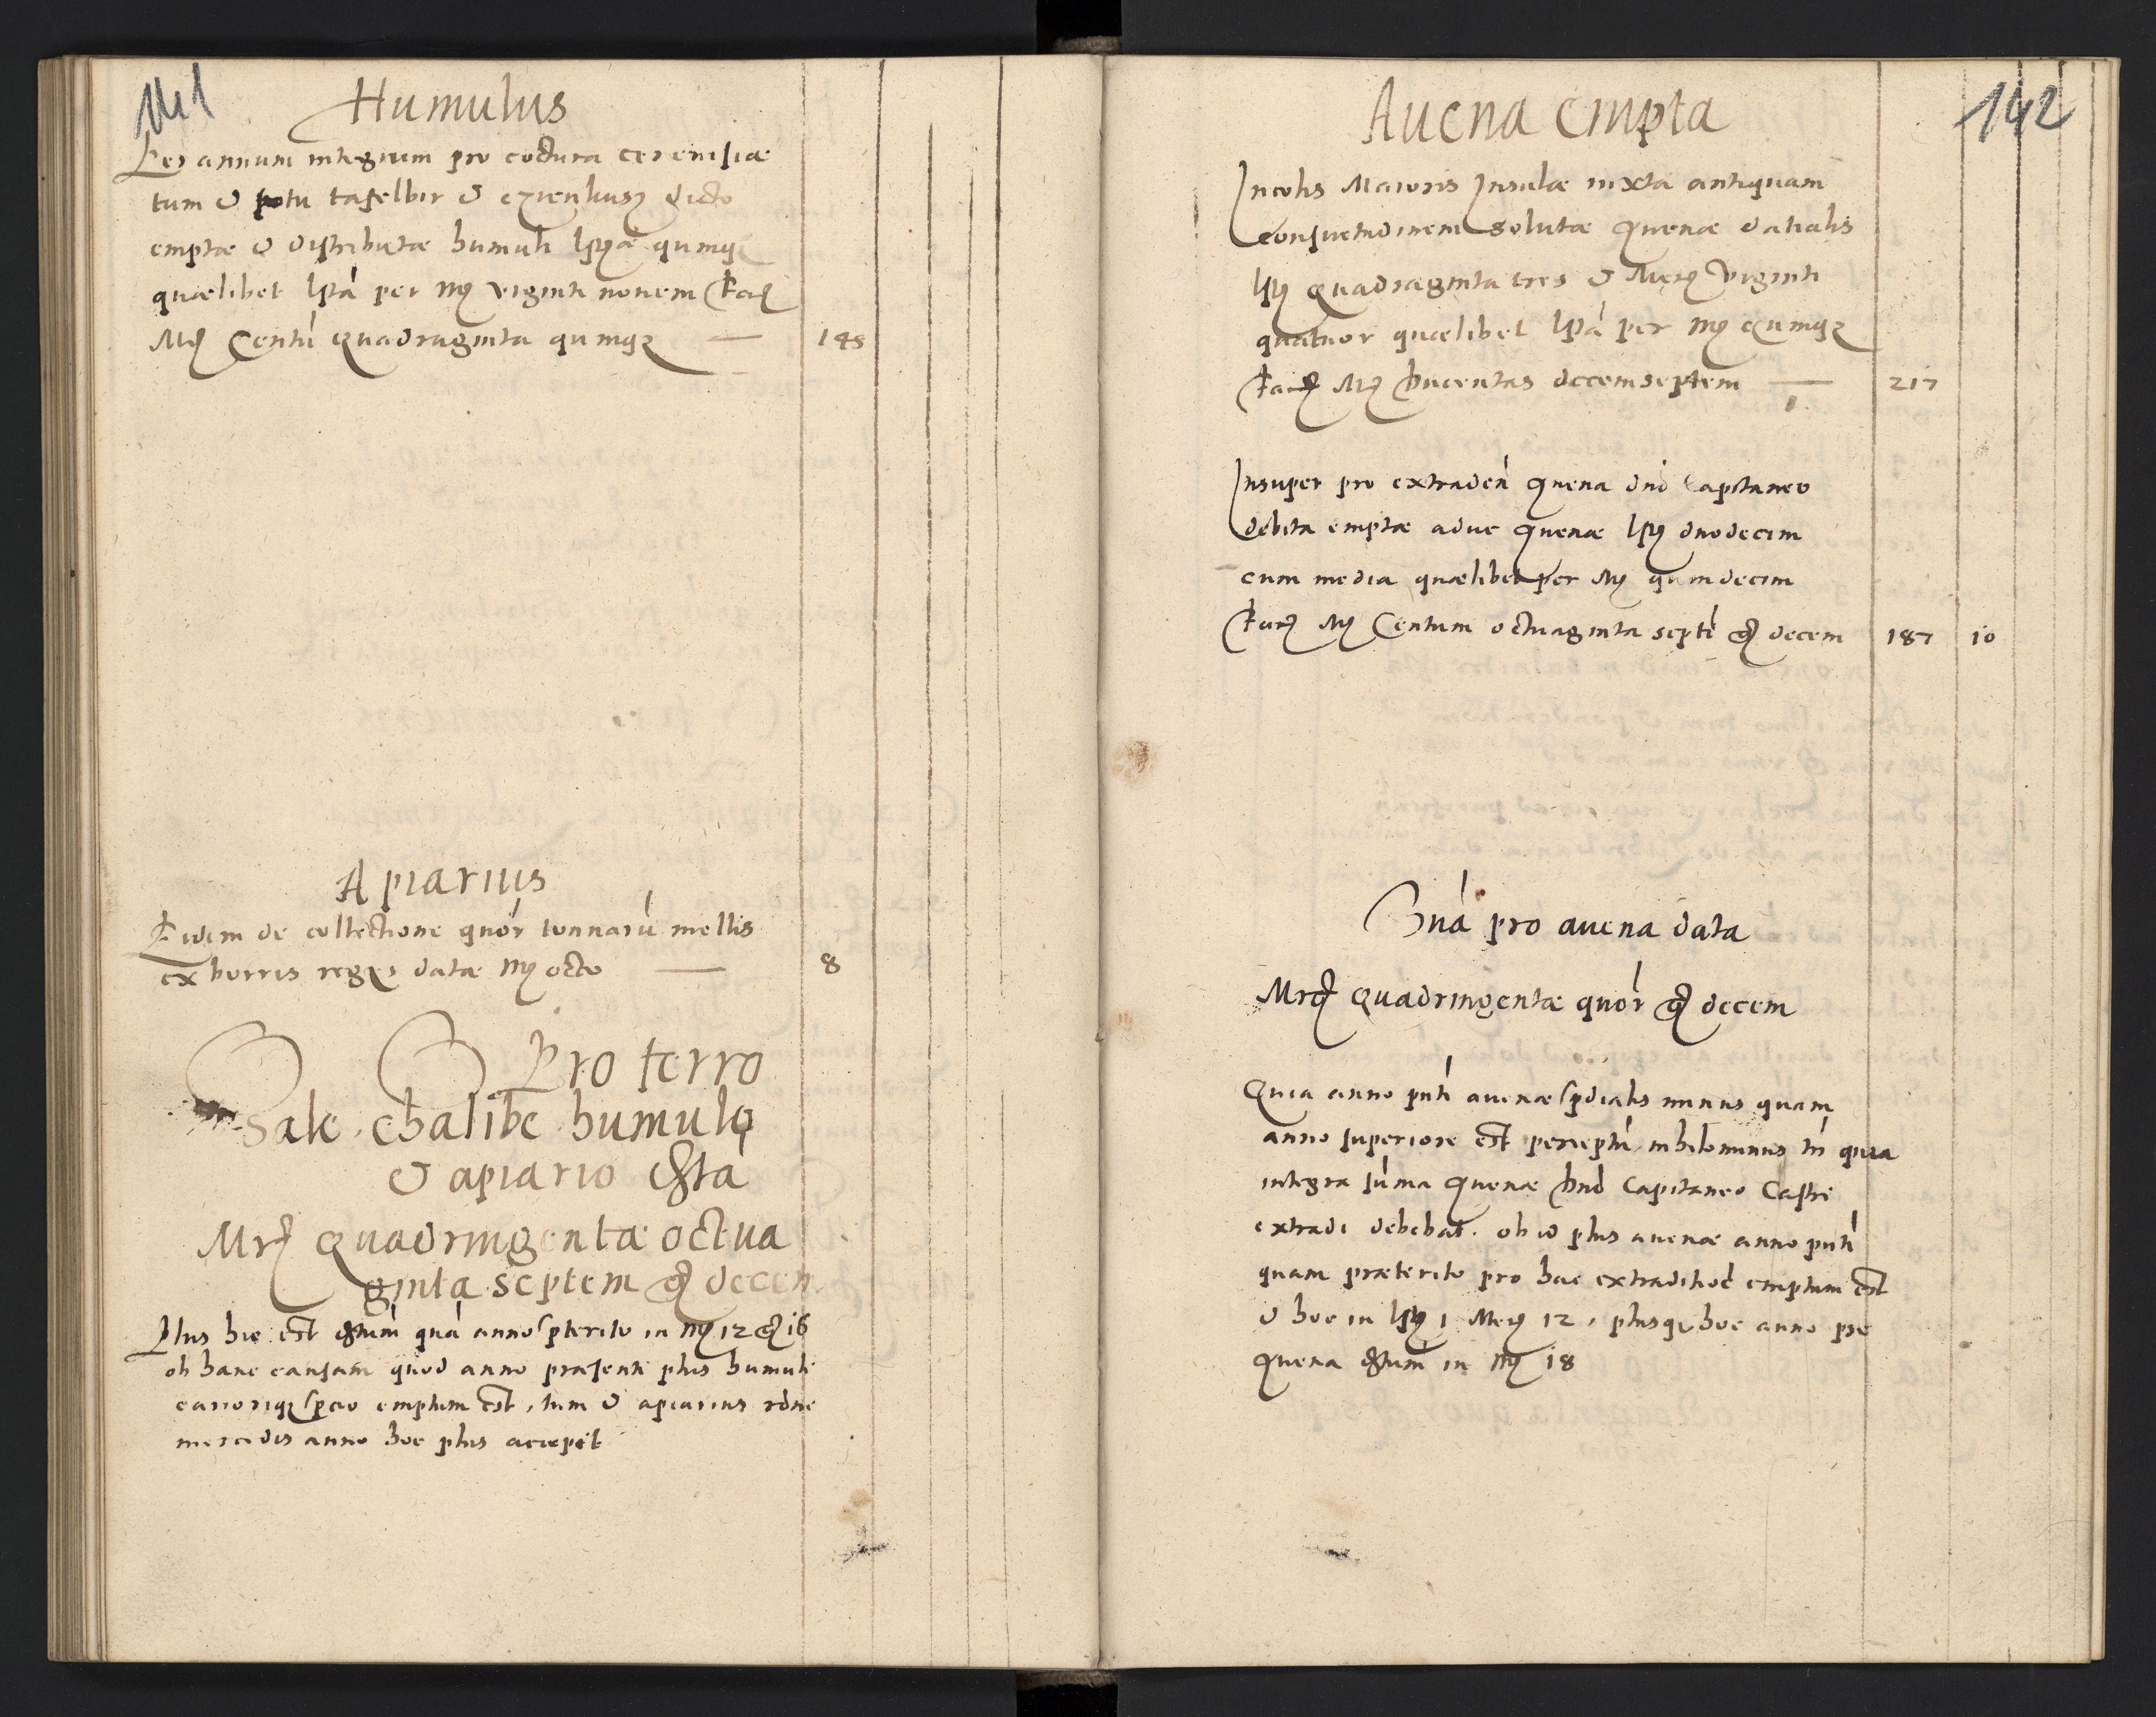 141
Humulus
Per annum integrum pro coctura cerevisiæ
tum & potu tafelbir & czienkusz dicto
emptæ & distributæ humuli lstæ quinq3
quælibet lsta per mrc viginti novem fac
Mrc Centu quadraginta quinq3 — 145
Apiarius
Eidem de collectione quor tonnaru mellis
ex borris regys datæ mrc octo — 8
Pro ferro
Sale chalibe humulo
& apiario Exsta
Mrc Quadringentæ octua
ginta septem gr decem
Plus hic est exstum qua anno pterito in mrc 12 gr 16
ob hanc causam quod anno præsenti plus humuli
carioriq3 pcio emptum est, tum & apiarius rõne
mercedis anno hoc plus accepit
142
Avena empta
Incolis Maioris Insulæ iuxta antiquam
consuetudinem solutæ avenæ datialis
lst quadraginta tres & Mens viginti
quatuor quælibet lsta per mrc quinq3
fac Mrc Ducentas decemseptem — 217
Insuper pro extraden avena dno Capitaneo
debita emptæ aduc avenæ lst duodecim
cum media quælibet per mrc quindecim
fac Mrc Centum octuaginta septe gr decem 187 10
Sua pro avena data
Mrc quadringentæ quor gr decem
Quia anno pnti avenæ spdialis minus quam
anno superiore est perceptu nihilominus tn quia
integra suma avenæ Dno Capitaneo Castri
extradi debebat. ob id plus avenæ anno pnti
quam præterito pro hac extraditioe emptum est
& hoc in lst 1 Mens 12, plusq hoc anno pro
avena exstum in mrc 18